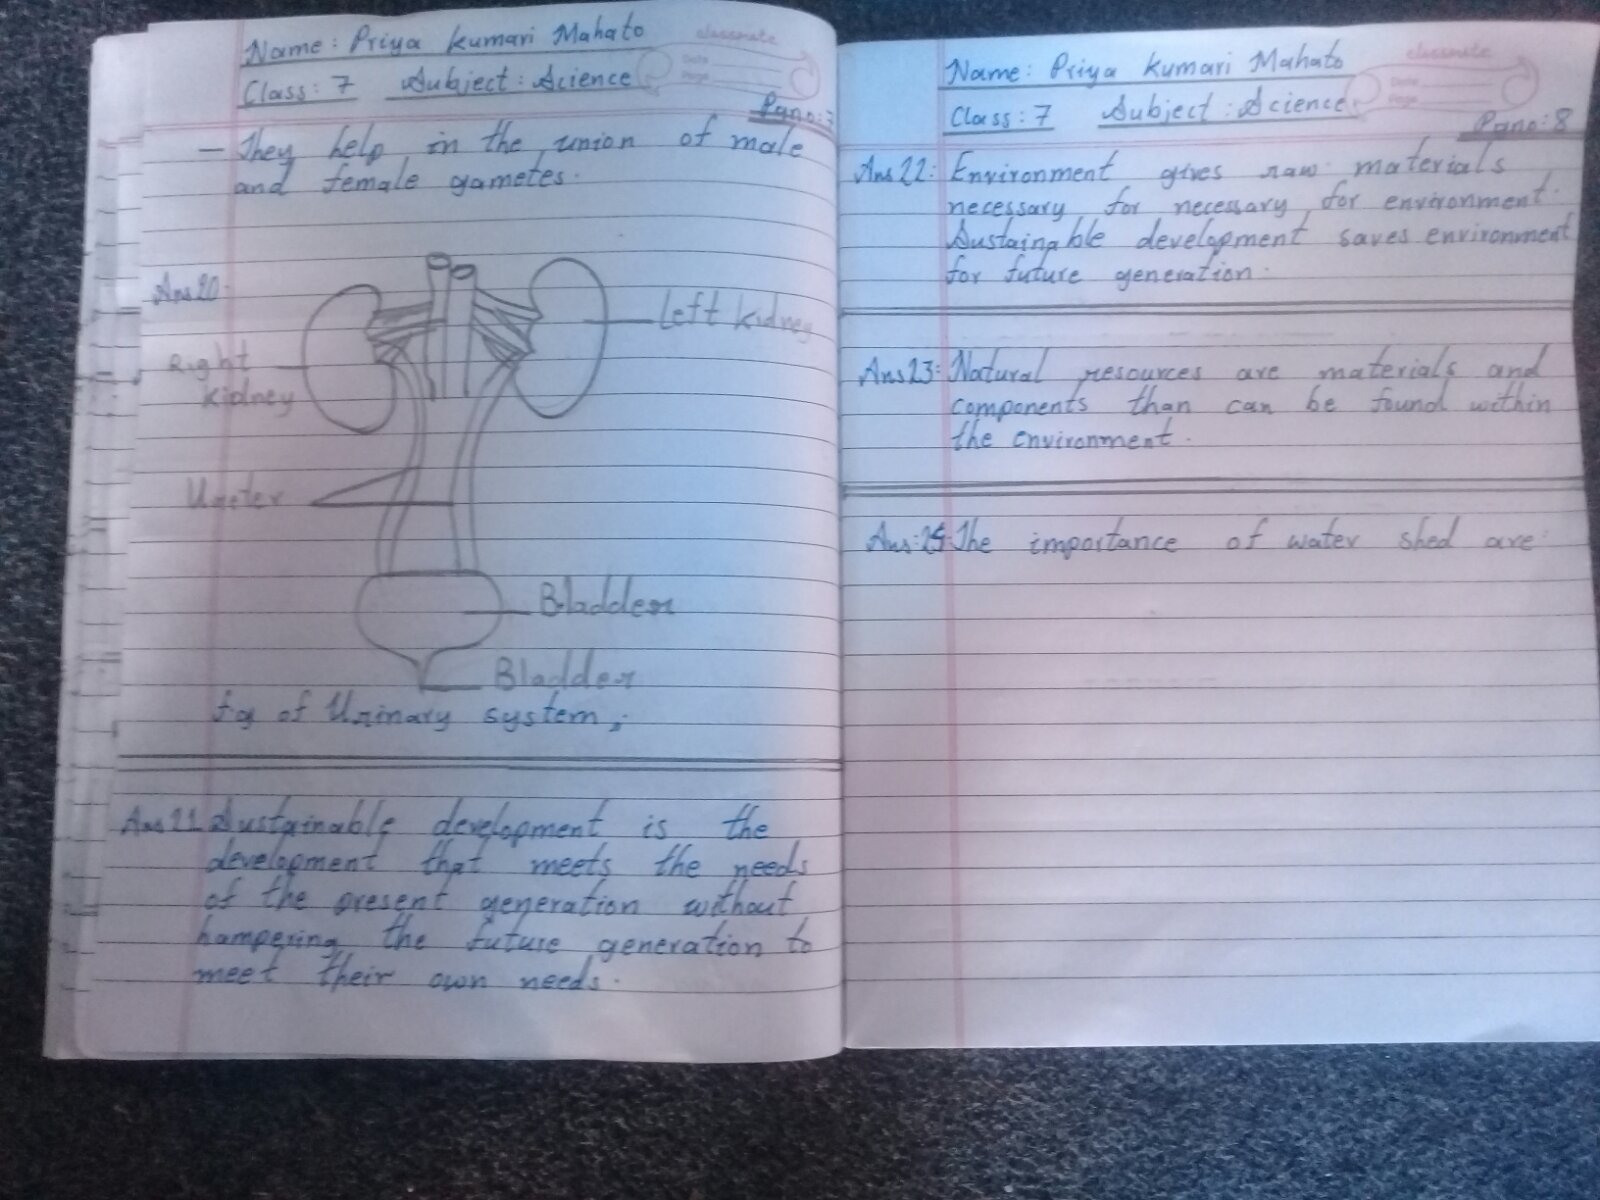 classmate
Name: Priya Kumari Mahato
Date
Class: 7 Subject: Science
Page
Pgno: 7
— They help in the union of male
and female gametes.
Ans 20.
Left kidney
Right
kidney
Ureter
Bladder
Bladder
fig of Urinary system,
Ans 21. Sustainable development is the
development that meets the needs
of the present generation without
hampering the future generation to
meet their own needs.
classmate
Name: Priya Kumari Mahato
Date
Class: 7 Subject: Science
Page
Pgno: 8
Ans 22: Environment gives raw materials
necessary for necessary for environment.
Sustainable development saves environment
for future generation.
Ans 23: Natural resources are materials and
components than can be found within
the environment.
Ans: 25 The importance of water shed are: